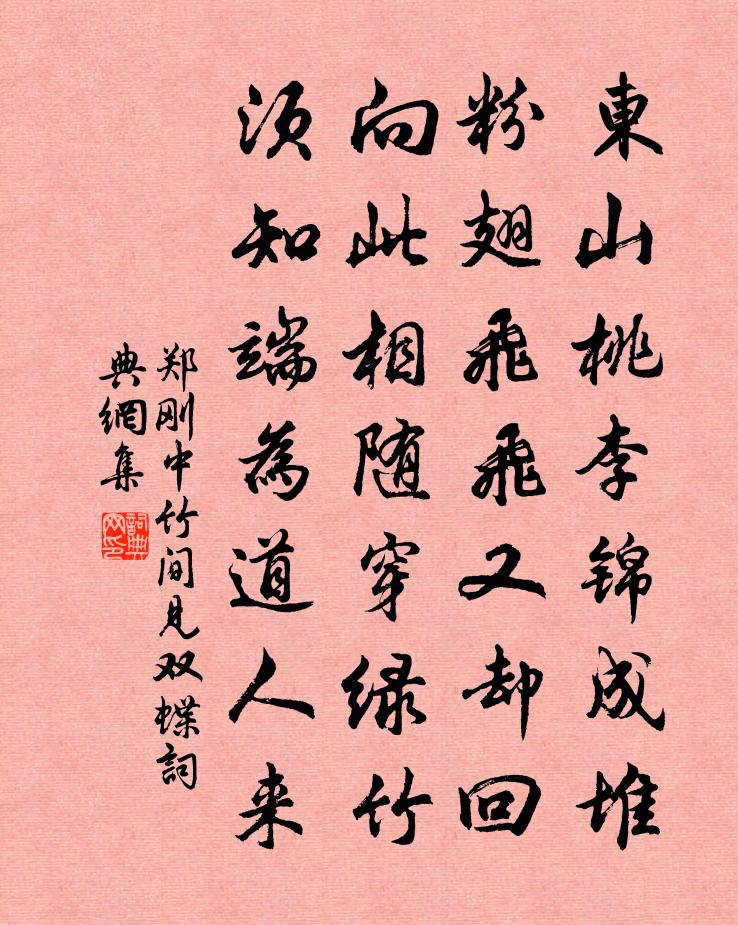 東山桃李锦成堆
粉翅飛飛又却回
向此相随穿绿竹
须知端為道人来
郑刚中竹间见双蝶詞
典網集
詞典
网印